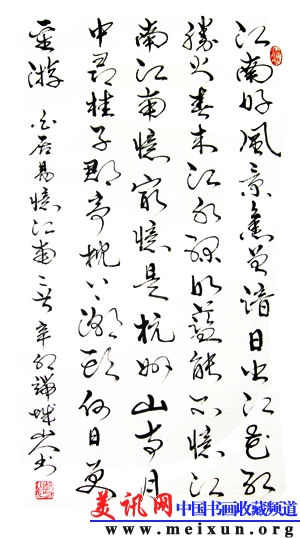 江南好風景舊曾諳日出江花紅
勝火春来江水綠如藍能不憶江
南江南憶最憶是杭州山寺月
中尋桂子郡亭枕上潮頭何日更
重游 白居易憶江南二首 辛卯
美讯网 中国书画收藏频道
www.meixun.org